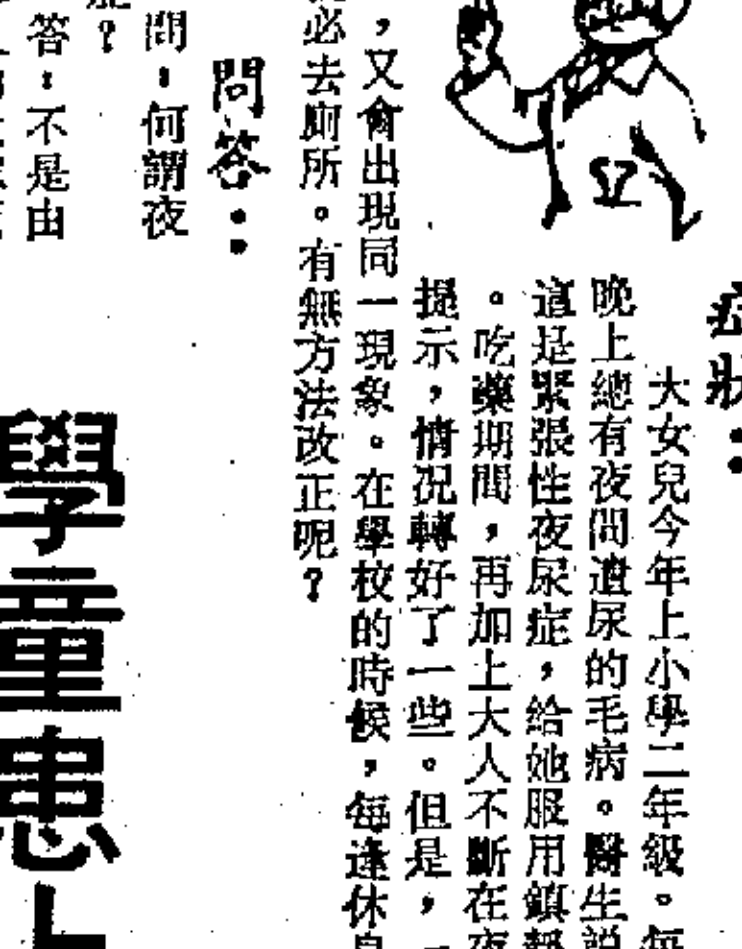 症狀：
大女兒今年上小學二年級。每
晚上總有夜間遺尿的毛病。醫生説
這是緊張性夜尿症，給她服用鎮靜
。吃藥期間，再加上大人不斷在夜
提示，情況轉好了一些。但是，一
，又會出現同一現象。在學校的時候，每逢休息
必去廁所。有無方法改正呢？
問答：
問：何謂夜
？
答：不是由
學童患